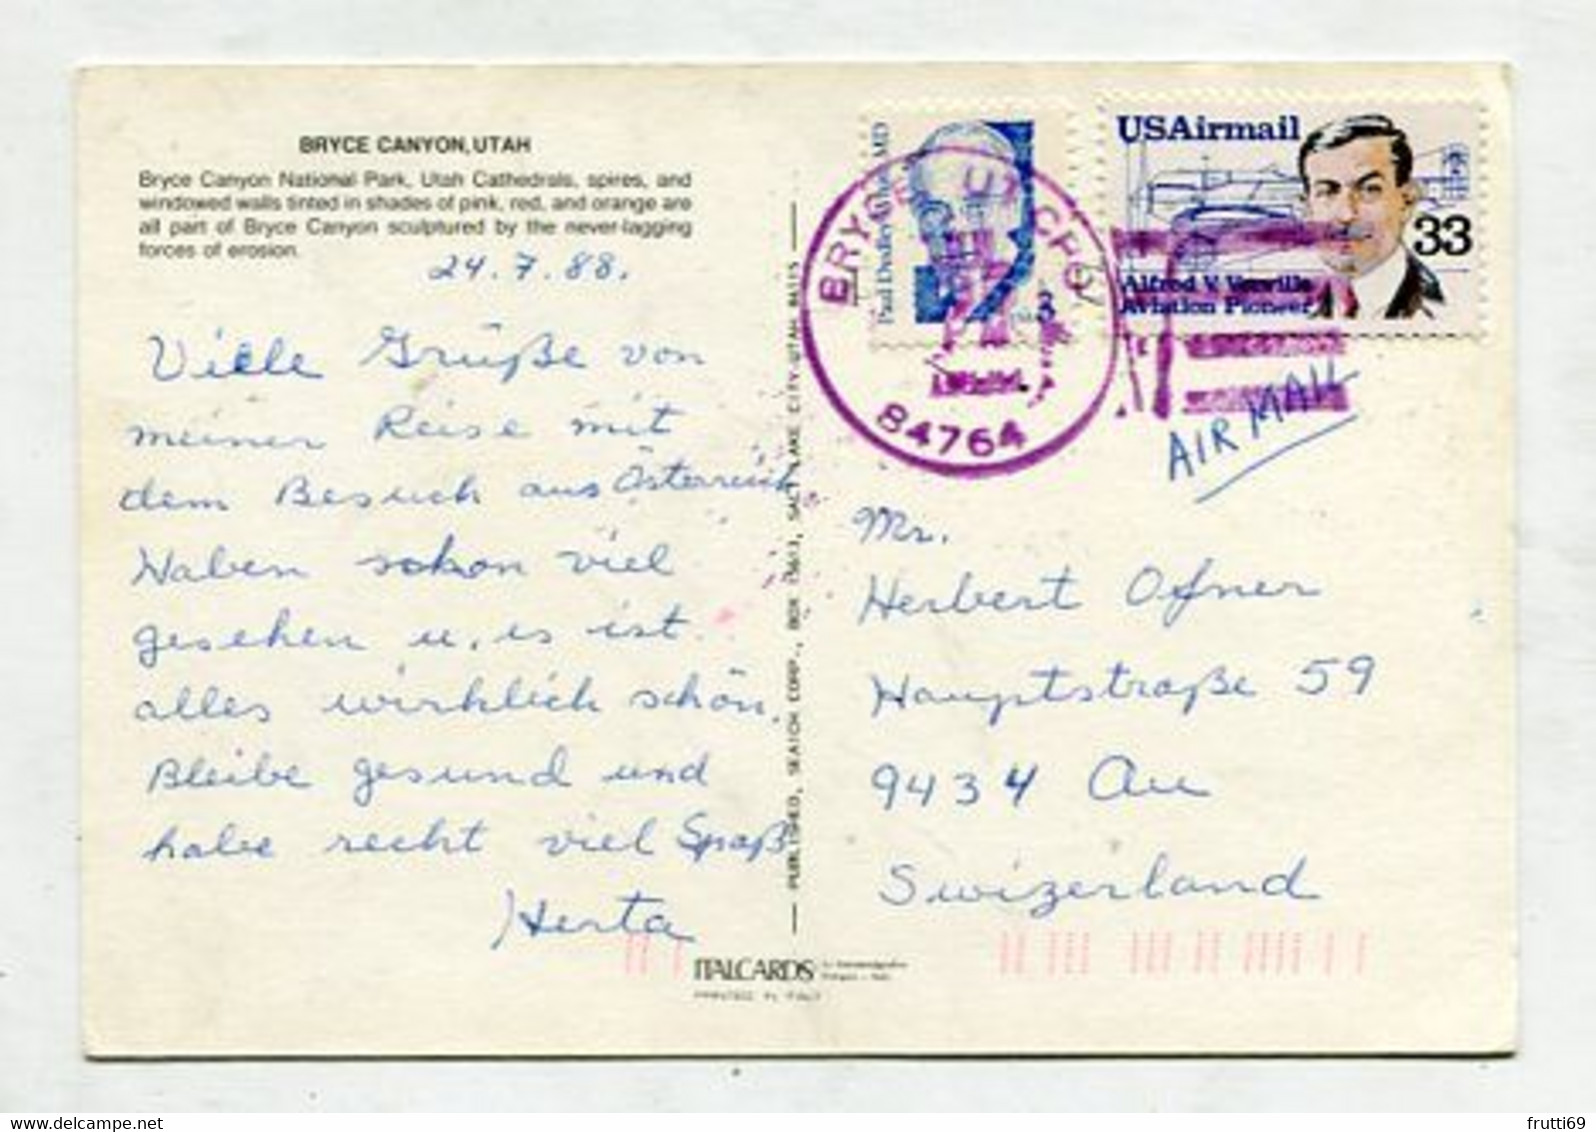 BRYCE CANYON, UTAH
Bryce Canyon National Park, Utah Cathedrals, spires, and
windowed walls tinted in shades of pink, red, and orange are
all part of Bryce Canyon sculptured by the never-lagging
forces of erosion.
24.7.88.
Viele Grüße von
meiner Reise mit
dem Besuch aus Österreich
Haben schon viel
gesehen u. es ist
alles wirklich schön.
Bleibe gesund und
habe recht viel Spaß
Herta
PUBLISHED, SEAICH CORP., BOX SALT LAKE CITY, UTAH
ITALCARDS
PRINTED IN ITALY
Paul Dudley White MD
3
BRYCE UT CPO
84764
USAirmail
33
Alfred V. Verville
Aviation Pioneer
AIR MAIL
Mr.
Herbert Ofner
Hauptstraße 59
9434 Au
Swizerland
frutti69